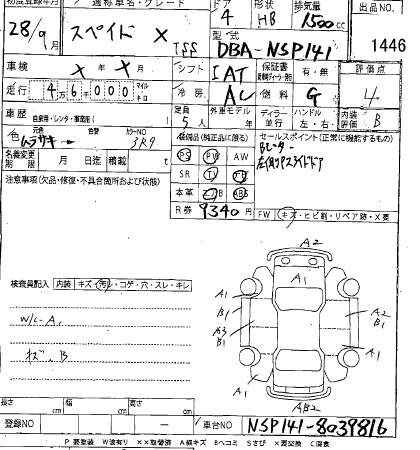 初度登録年月 通称車名・グレード ドア 形状 排気量 出品NO.
4 HB 1500cc
28/9月 スペイド X TSS
型式
DBA-NSP141 1446
車検 X年X月 シフト IAT 保証書 有・無 評価点
走行 46000 マイル キロ 冷房 AC 燃料 G 4
車歴 自家用・レンタ・事業用( ) 定員 5人 外車モデル 年 ディーラー 並行 ハンドル 左・右 内装評価 B
色 元色 ムラサキ 色替 カラーNO 3R9
装備品(純正品に限る) セールスポイント(正常に機能するもの)
名義変更期限 月 日迄 積載 t
PS PW AW
Bモーター
左側Pスライドドア
SR TV
本革 ABS
R券 9340円
注意事項(欠品・修復・不具合箇所および状態)
FW キズ・ヒビ割・リペア跡・X要
A2
A1
検査員記入 内装 キズ・汚レ・コゲ・穴・スレ・キレ
A1
B1 A2
B1
W/C-A1
A3
B1
キズ、B
A1 A1
AB2
長さ cm 幅 cm 高さ cm
登録NO - 車台NO NSP141-8039816
P 要塗装 W波有り XX取替済 A線キズ Bヘコミ Sさび X要交換 C腐食